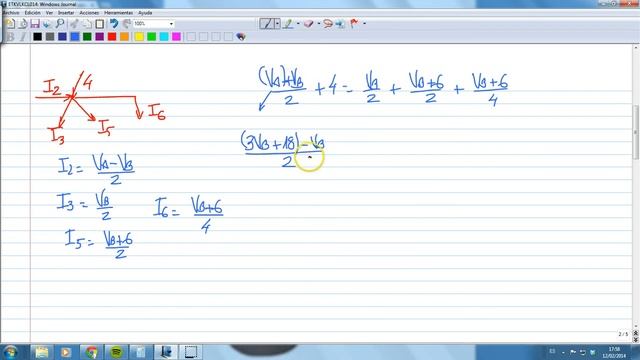 ETKVLKCL014: Windows Journal
Archivo Edición Ver Insertar Acciones Herramientas Ayuda
100%
I2 4
I3 I5 I6
(VA)+VB/2 + 4 = VA/2 + VB+6/2 + VB+6/4
(3VB+18)-VB/2
I2 = VA-VB/2
I3 = VB/2
I6 = VB+6/4
I5 = VB+6/2
2 / 5
ES 17:58
12/02/2014